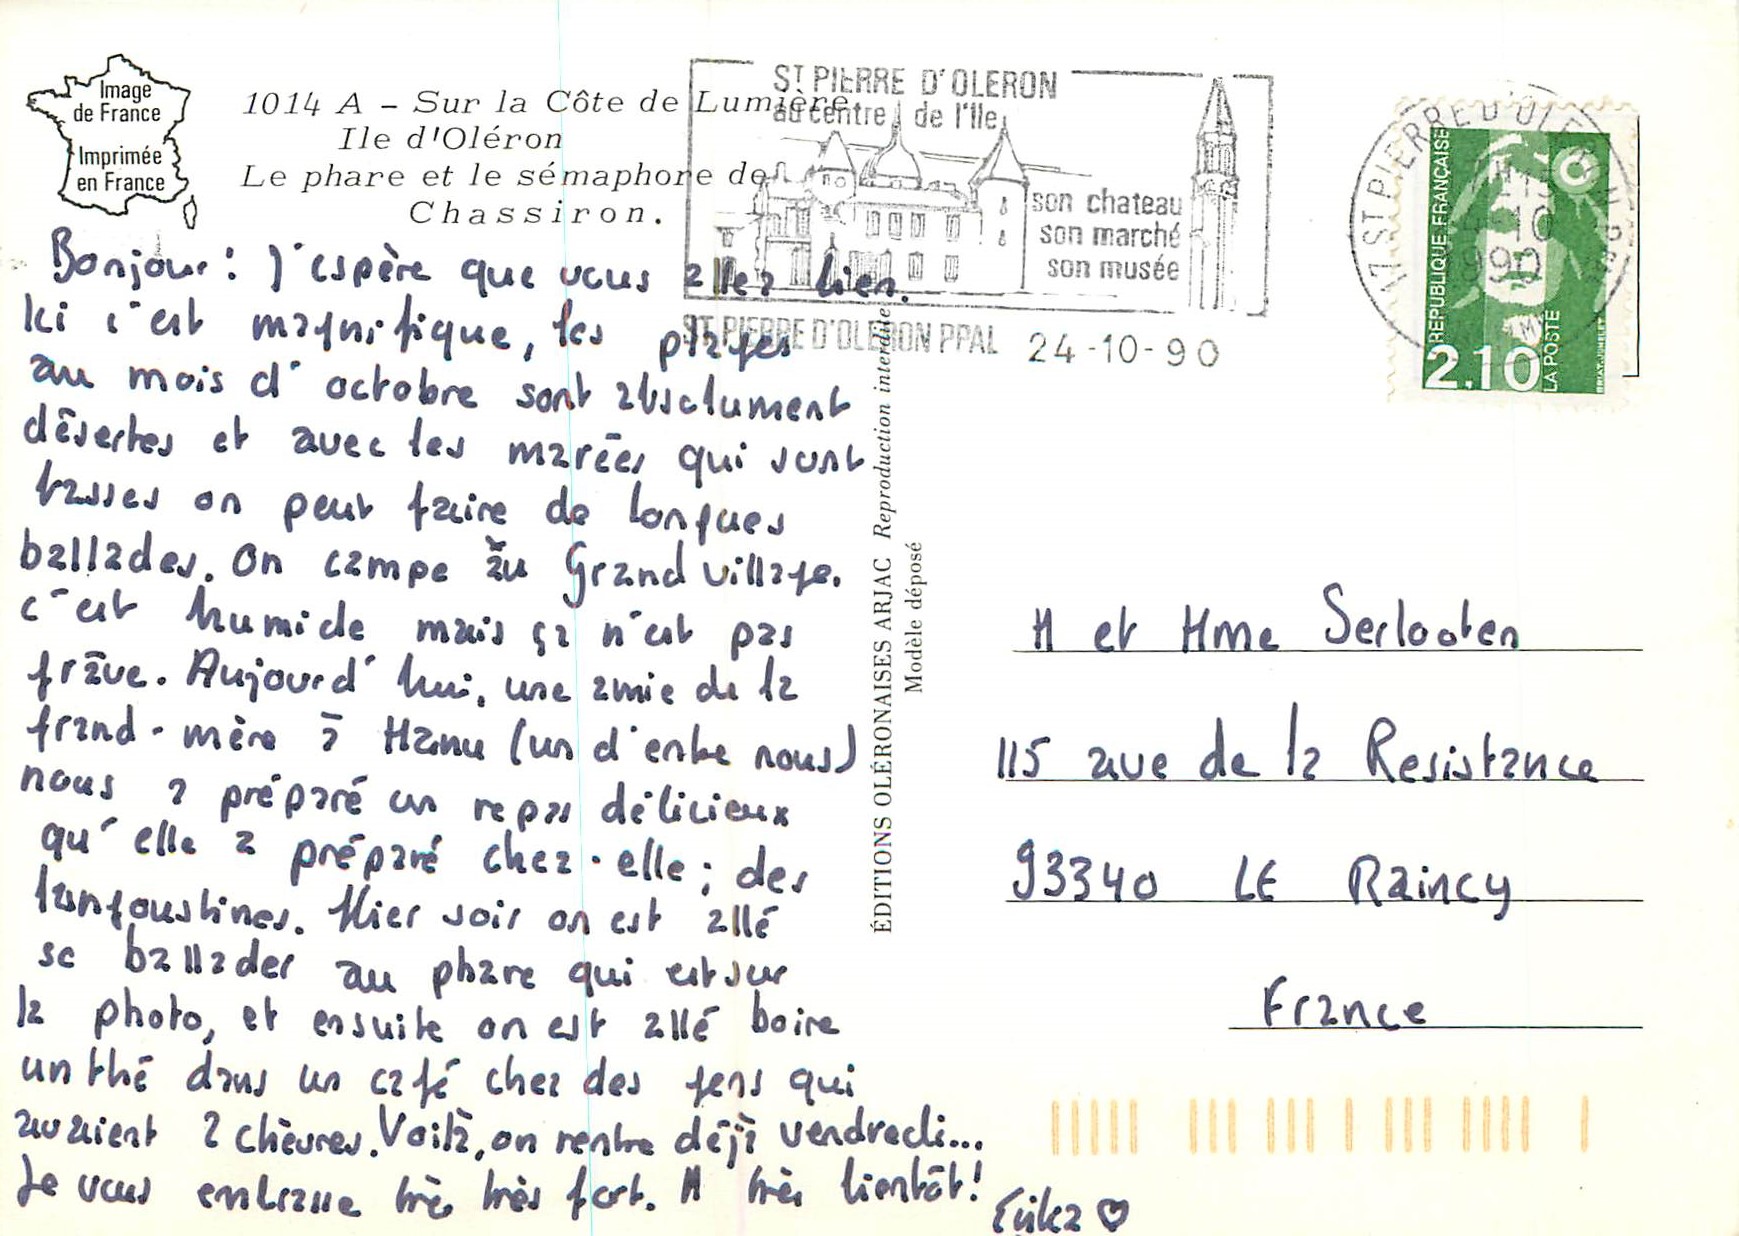 Image
de France
Imprimée
en France
1014 A – Sur la Côte de Lumière
Ile d'Oléron
Le phare et le sémaphore de
Chassiron.
ST PIERRE D'OLERON
au centre de l'Ile
son chateau
son marché
son musée
ST PIERRE D'OLERON PPAL 24-10-90
17 ST PIERRE D'OLERON
REPUBLIQUE FRANÇAISE
2,10
LA POSTE
Bonjour! J'espère que vous allez bien.
Ici c'est magnifique, les plages
au mois d'octobre sont absolument
désertes et avec les marées qui sont
basses on peut faire de longues
ballades. On campe au Grand village.
c'est humide mais ça n'est pas
grave. Aujourd'hui, une amie de la
grand-mère à Manu (un d'entre nous)
nous a préparé un repas délicieux
qu'elle a préparé chez-elle; des
langoustines. Hier soir on est allé
se ballader au phare qui est sur
la photo, et ensuite on est allé boire
un thé dans un café chez des gens qui
avaient 2 chèvres. Voilà, on rentre déjà vendredi...
Je vous embrasse très très fort. A très bientôt!
Erika ♡
ÉDITIONS OLÉRONAISES ARJAC Reproduction interdite
Modèle déposé
M et Mme Serlooten
115 ave de la Resistance
93340 LE Raincy
France